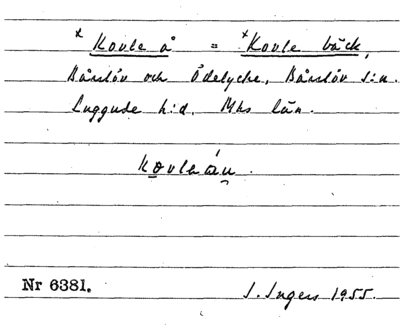 x Kovle å = x Kovle bäck,
Bårslöv och Ödelycke, Bårslöv s:n.
Luggude h:d. Mhs län.
Kovleån.
Nr 6381. I. Ingers 1955.